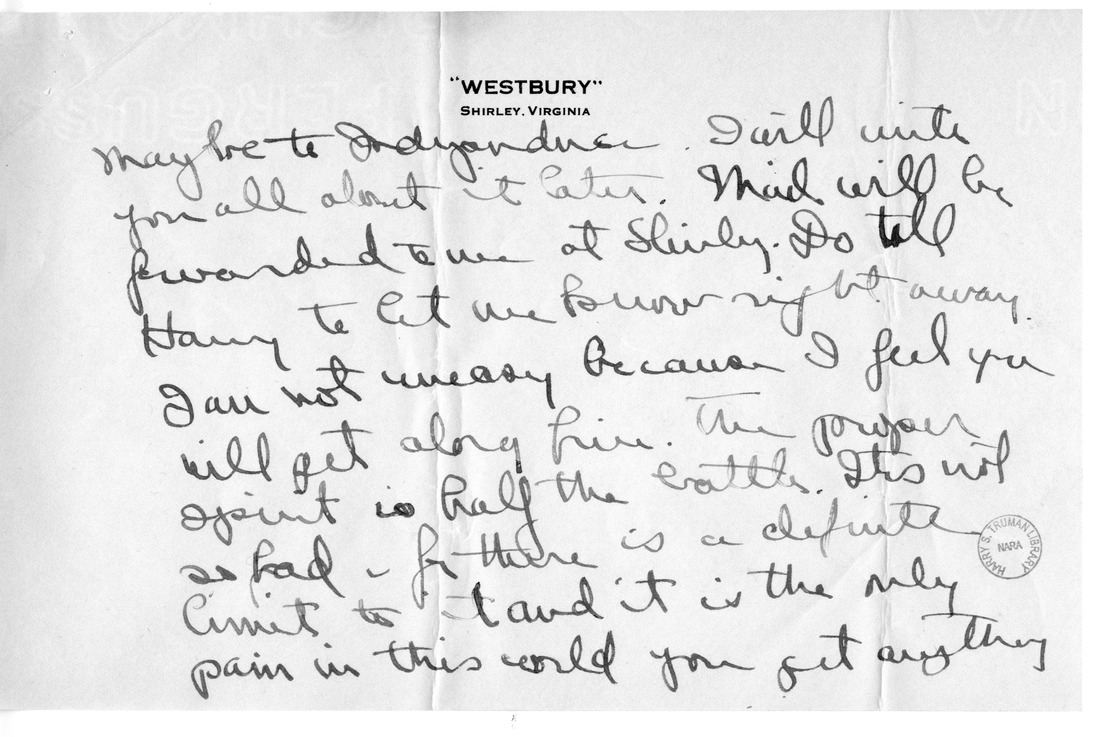 "WESTBURY"
SHIRLEY, VIRGINIA
maybe to Independence. I will write
you all about it later. Mail will be
forwarded to me at Shirley. Do tell
Harry to let me know right away.
I am not uneasy because I feel you
will get along fine. The proper
spirit is half the battle. It is not
so bad - for there is a definite
limit to it and it is the only
pain in this world you get anything
HARRY S. TRUMAN LIBRARY
NARA